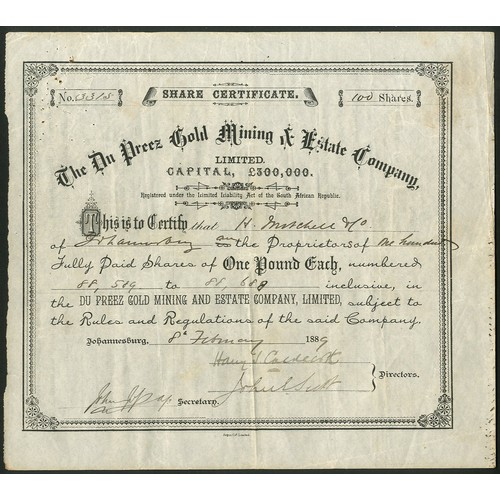 SHARE CERTIFICATE.
No. 100 Shares.
The Du Preez Gold Mining & Estate Company,
LIMITED.
CAPITAL, £300,000.
Registered under the Limited Liability Act of the South African Republic.
This is to Certify that H. Mitchell & Co
of Johannesburg are the Proprietors of One hundred
Fully Paid Shares of One Pound Each, numbered
88,589 to 88,688 inclusive, in
the DU PREEZ GOLD MINING AND ESTATE COMPANY, LIMITED, subject to
the Rules and Regulations of the said Company.
Johannesburg, 8th February 1889
Directors.
Secretary.